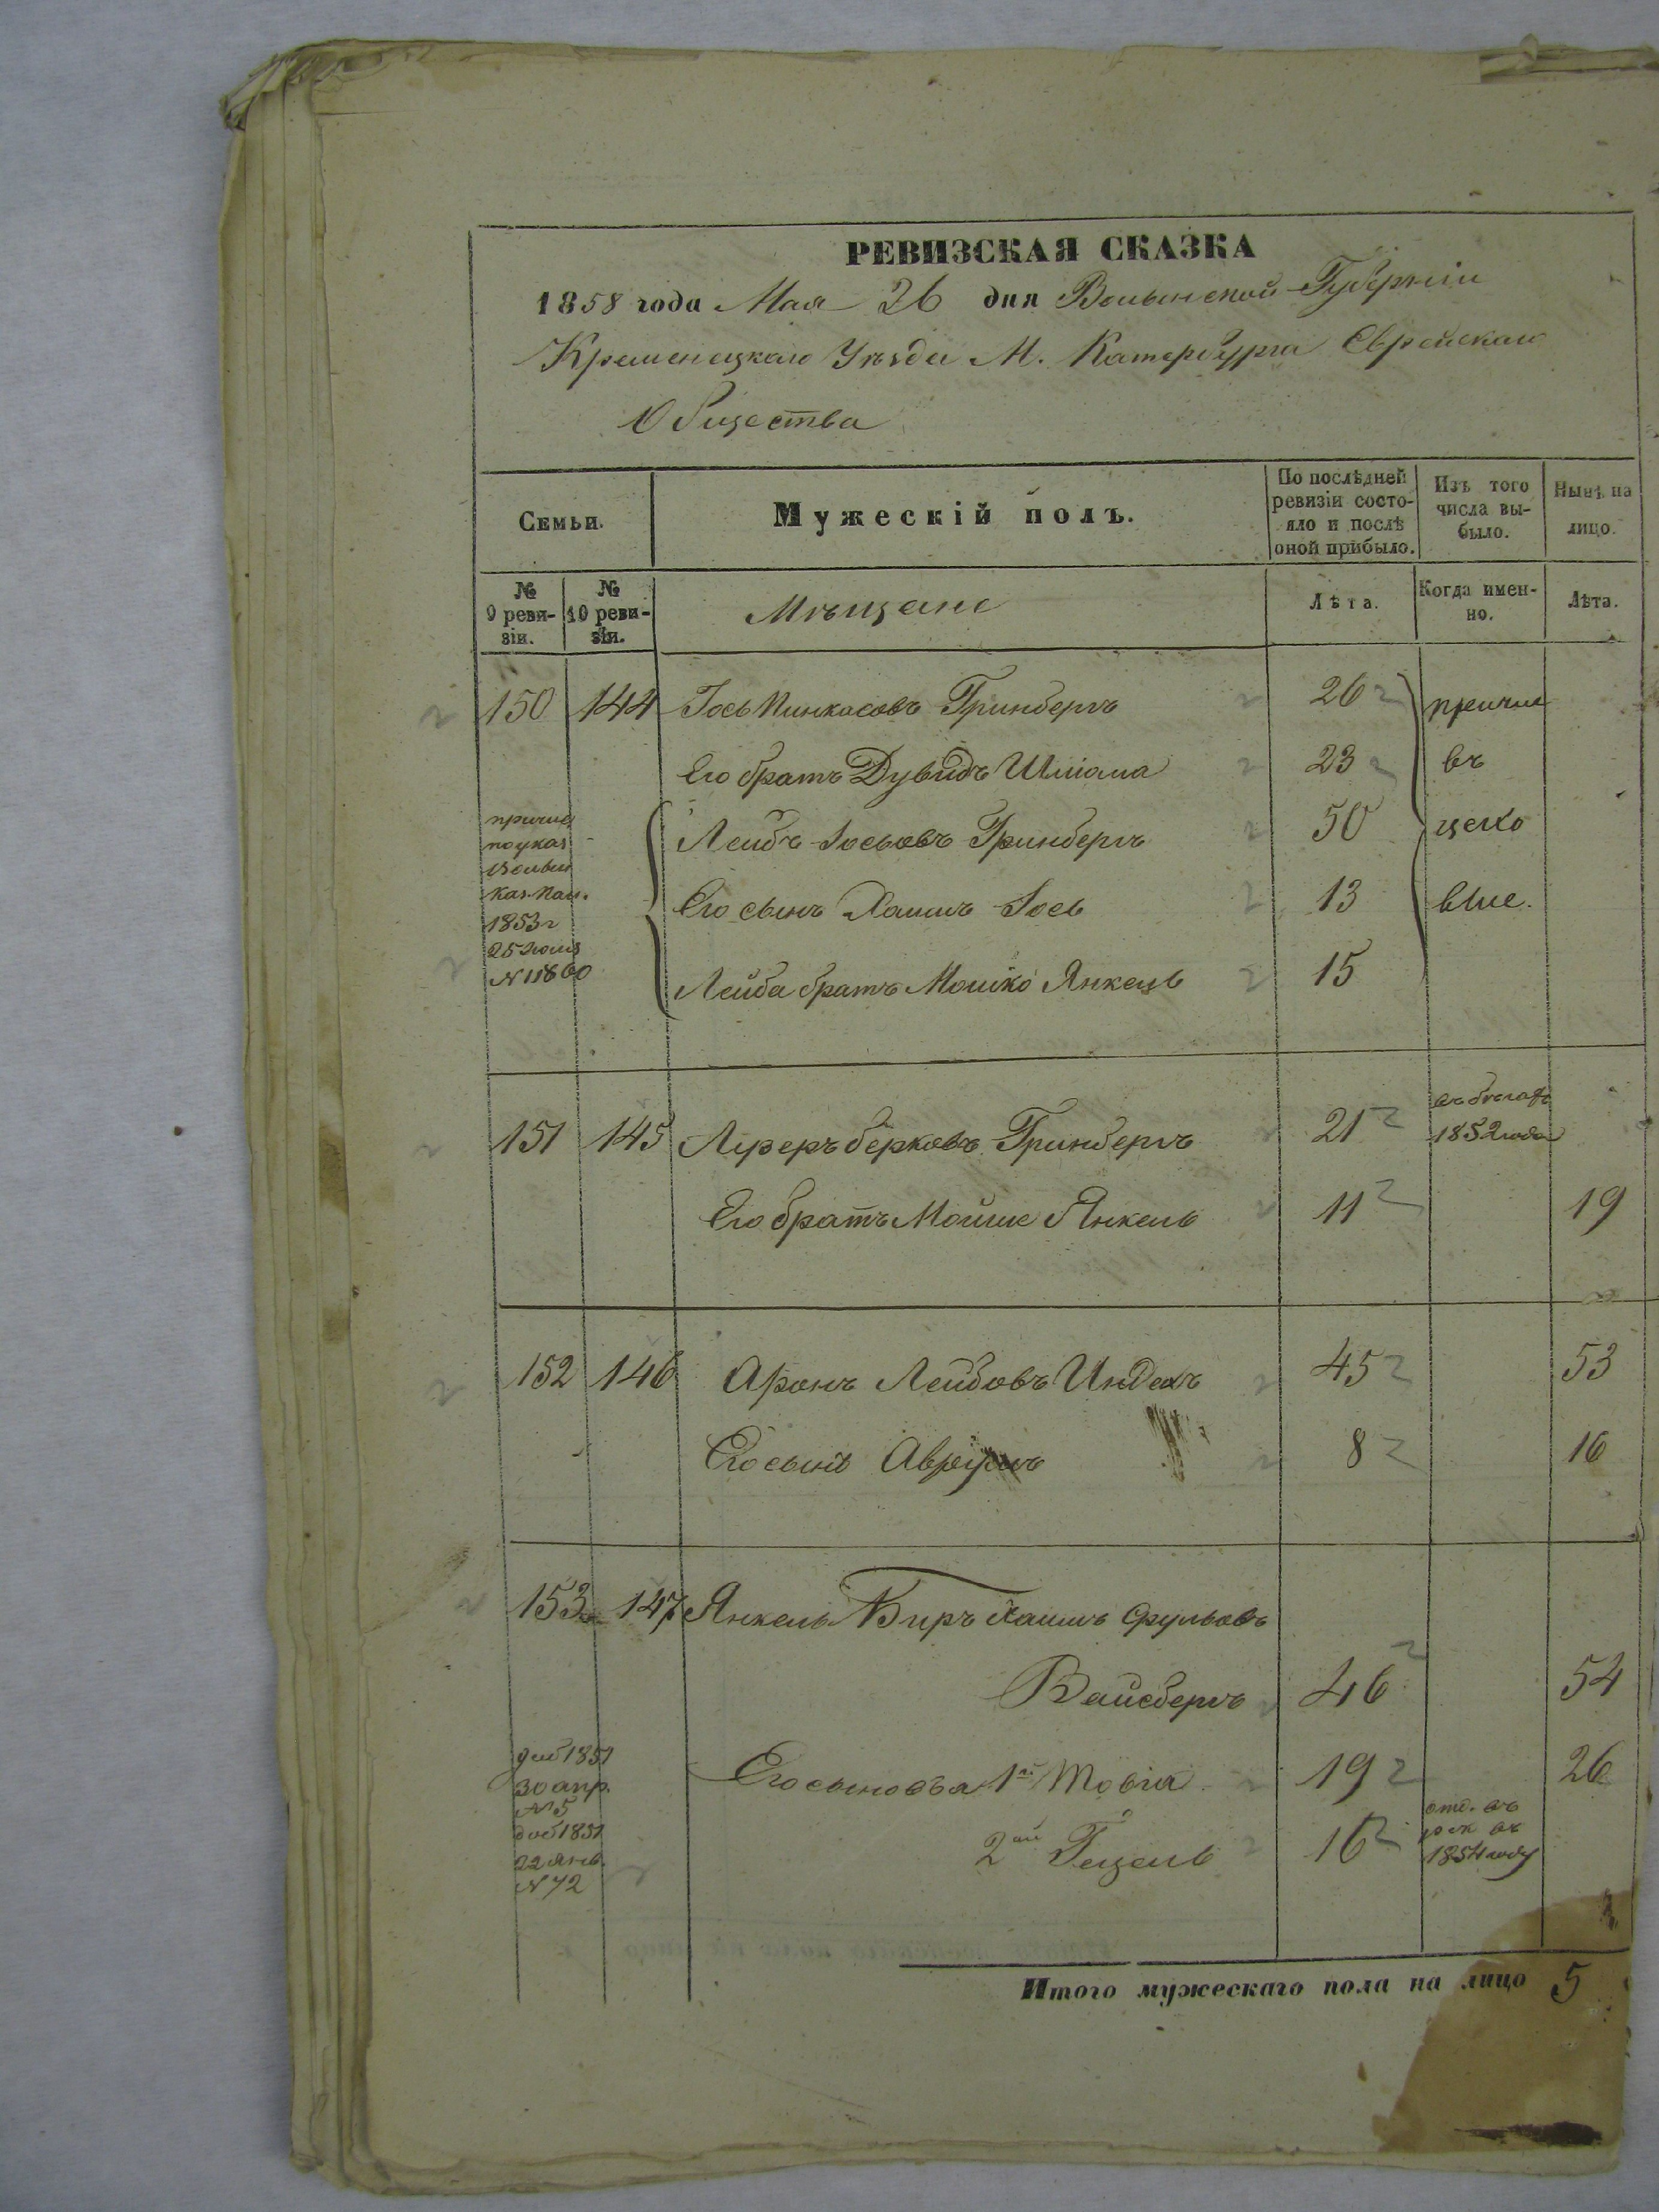 РЕВИЗСКАЯ СКАЗКА
1858 года Мая 26 дня Волынской Губерніи
Кременецкаго Уѣзда М. Катербурга Еврейскаго
Общества
Семьи. Мужескій полъ. По послѣдней ревизіи состояло и послѣ оной прибыло. Изъ того числа выбыло. Нынѣ на лицо.
№ 9 ревизіи. № 10 ревизіи. Мѣщане Лѣта. Когда именно. Лѣта.
150 144 Іось Пинкасовъ Гринбергъ 26 причис
Его братъ Дувидъ Шлiома 23 въ
Лейбъ Іосьовъ Гринбергъ 50 цехо
Его сынъ Хаимъ Іось 13 вые.
Лейба братъ Мошко Янкель 15
причис
по указ
Волын
Каз. Пал.
1853 г
25 Июля
N 11860
151 145 Лузеръ Берковъ Гринбергъ 21 въ бѣгахъ
1852 года
Его братъ Мойше Янкель 11 19
152 146 Аронъ Лейбовъ Индехъ 45 53
Его сынъ Аврумъ 8 16
153 147 Янкель Биръ Хаимъ Срульовъ
Вайсбергъ 46 54
Его сыновья 1й Товія 19 26
2ой Гецель 16 отд. въ
рек въ
1854 году
1851
30 апр.
N 5
доб 1851
22 Янв.
N 72
Итого мужескаго пола на лицо 5